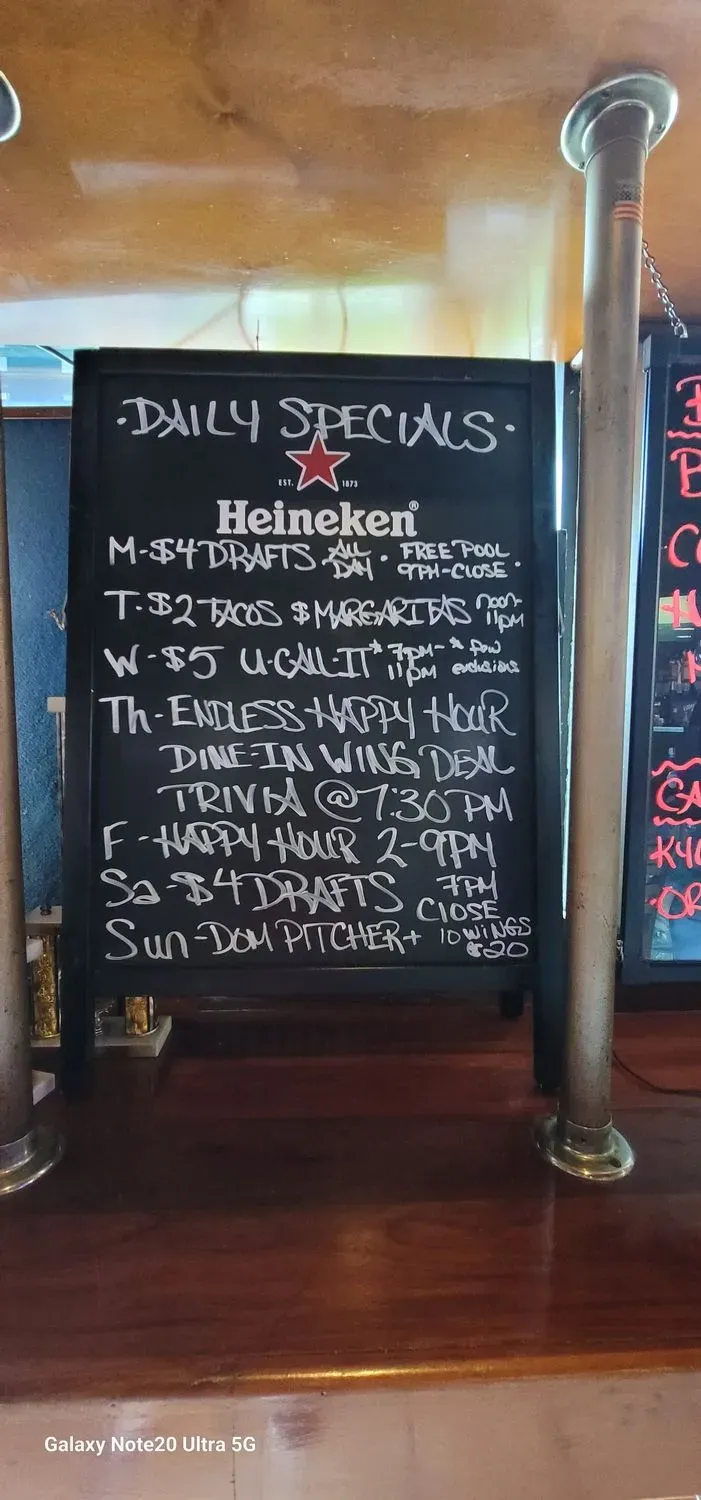 ·DAILY SPECIALS·
EST. 1873
Heineken®
M-$4 DRAFTS ALL DAY · FREE POOL 9PM-CLOSE ·
T-$2 TACOS $ MARGARITAS noon-11pm
W-$5 U-CALL-IT* 7pm-11pm * few exclusions
Th-ENDLESS HAPPY HOUR
DINE-IN WING DEAL
TRIVIA @ 7:30 PM
F-HAPPY HOUR 2-9PM
Sa-$4 DRAFTS 7PM CLOSE
Sun-DOM PITCHER + 10 WINGS $20
Galaxy Note20 Ultra 5G